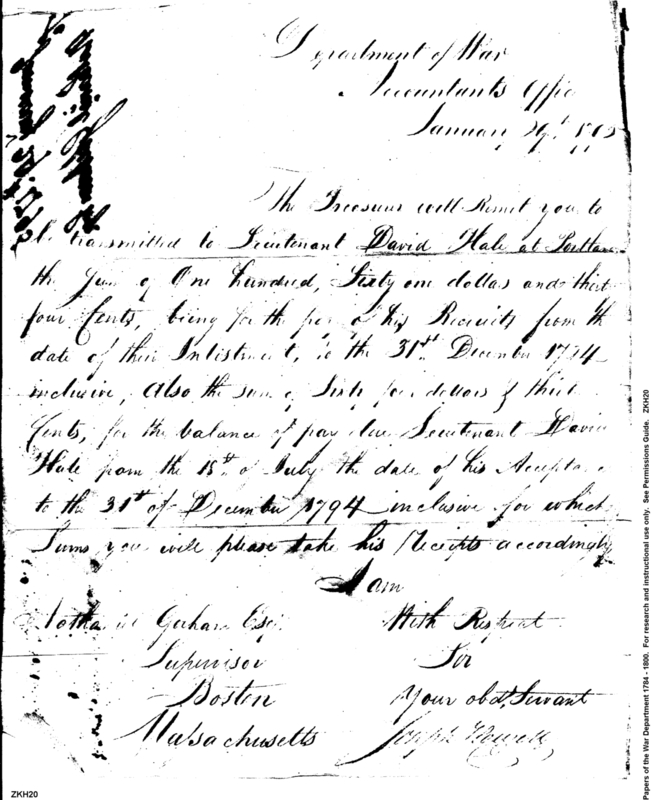 Department of War
Accountants Offic
January 29th 1795
The Treasurer will Remit you to
be transmitted to Lieutenant David Hale at Portland
the Sum of One hundred, Sixty one dollars and thirty
four Cents, being for the pay of his Recruits from th
date of their Inlistment, to the 31st December 1794
inclusive, Also the sum of Sixty four dollars & thirt
Cents, for the balance of pay due Lieutenant David
Hale from the 15th of July the date of his Acceptance
to the 31st of December 1794 inclusive for which
Sums you will please take his Receipts accordingly
I am
Nathaniel Gorham Esqr. With Respect
Supervisor Sir
Boston Your obdt. Servant
Massachusetts Joseph Howell
Papers of the War Department 1784 - 1800. For research and instructional use only. See Permissions Guide. ZKH20
ZKH20